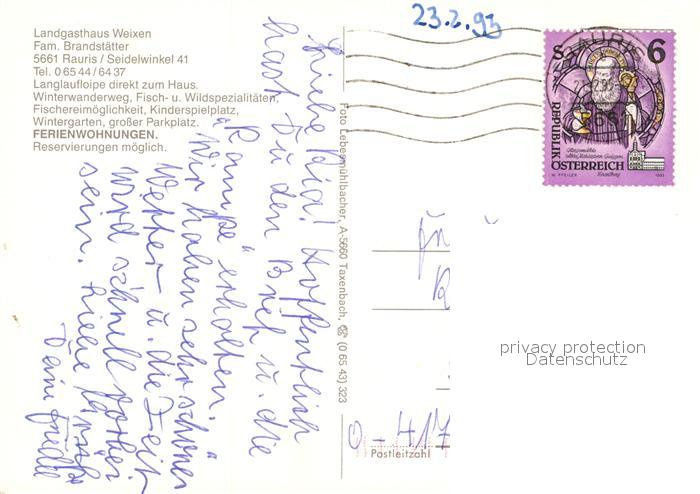 Landgasthaus Weixen
Fam. Brandstätter
5661 Rauris / Seidelwinkel 41
Tel. 0 65 44 / 64 37
Langlaufloipe direkt zum Haus.
Winterwanderweg, Fisch- u. Wildspezialitäten,
Fischereimöglichkeit, Kinderspielplatz,
Wintergarten, großer Parkplatz.
FERIENWOHNUNGEN.
Reservierungen möglich.
23.2.93
Liebe Pia! Hoffentlich
hast Du den Brief u. die
"Rampe" erhalten.
Wir haben sehr schönes
Wetter u. die Zeit
wird schnell vorbei
sein. Liebe Grüße
Deine Friedl
Foto Lebesmühlbacher, A-5660 Taxenbach, ☎ (0 65 43) 323
RAURIS
S 6
REPUBLIK
ÖSTERREICH
W. PFEILER 1993
privacy protection
Datenschutz
D-417
Postleitzahl